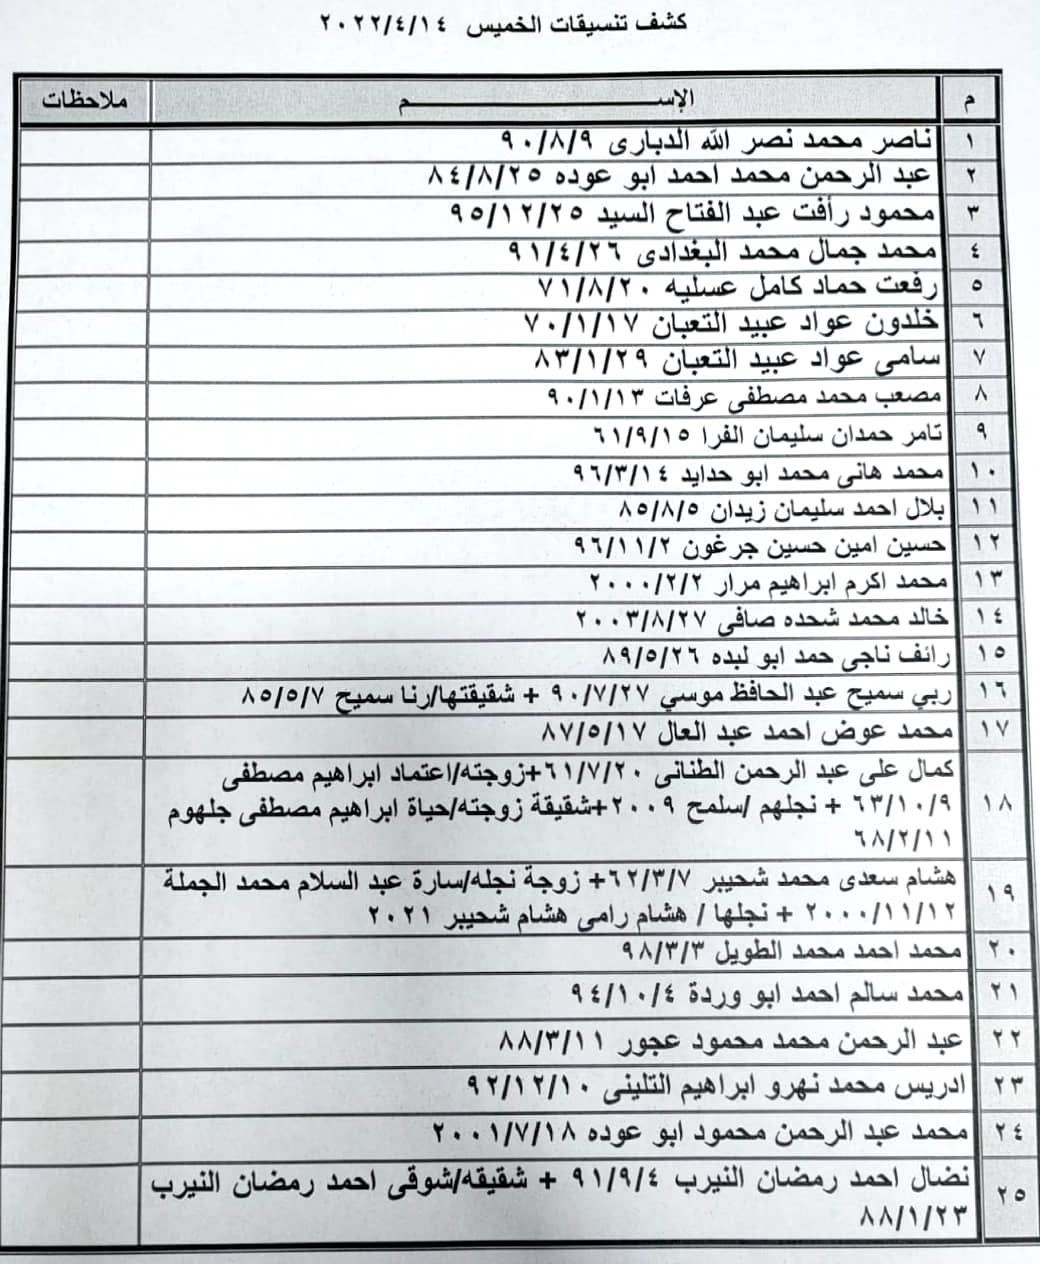 كشف تنسيقات الخميس ٢٠٢٢/٤/١٤
م الإســـــــــــم ملاحظات
١ ناصر محمد نصر الله الدبارى ٩٠/٨/٩
٢ عبد الرحمن محمد احمد ابو عوده ٨٤/٨/٢٥
٣ محمود رأفت عبد الفتاح السيد ٩٥/١٢/٢٥
٤ محمد جمال محمد البغدادى ٩١/٤/٢٦
٥ رفعت حماد كامل عسليه ٧١/٨/٢٠
٦ خلدون عواد عبيد التعبان ٧٠/١/١٧
٧ سامى عواد عبيد التعبان ٨٣/١/٢٩
٨ مصعب محمد مصطفى عرفات ٩٠/١/١٣
٩ تامر حمدان سليمان الفرا ٦١/٩/١٥
١٠ محمد هانى محمد ابو حدايد ٩٦/٣/١٤
١١ بلال احمد سليمان زيدان ٨٥/٨/٥
١٢ حسين امين حسين جرغون ٩٦/١١/٢
١٣ محمد اكرم ابراهيم مرار ٢٠٠٠/٢/٢
١٤ خالد محمد شحده صافى ٢٠٠٣/٨/٢٧
١٥ رائف ناجى حمد ابو لبده ٨٩/٥/٢٦
١٦ ربي سميح عبد الحافظ موسي ٩٠/٧/٢٧ + شقيقتها/رنا سميح ٨٥/٥/٧
١٧ محمد عوض احمد عبد العال ٨٧/٥/١٧
كمال على عبد الرحمن الطنانى ٦١/٧/٢٠+زوجته/اعتماد ابراهيم مصطفى
١٨ ٦٣/١٠/٩ + نجلهم /سلمح ٢٠٠٩+شقيقة زوجته/حياة ابراهيم مصطفى جلهوم
٦٨/٢/١١
١٩ هشام سعدى محمد شحيبر ٦٢/٣/٧+ زوجة نجله/سارة عبد السلام محمد الجملة
٢٠٠٠/١١/١٢ + نجلها / هشام رامى هشام شحيبر ٢٠٢١
٢٠ محمد احمد محمد الطويل ٩٨/٣/٣
٢١ محمد سالم احمد ابو وردة ٩٤/١٠/٤
٢٢ عبد الرحمن محمد محمود عجور ٨٨/٣/١١
٢٣ ادريس محمد نهرو ابراهيم التلينى ٩٢/١٢/١٠
٢٤ محمد عبد الرحمن محمود ابو عوده ٢٠٠١/٧/١٨
٢٥ نضال احمد رمضان النيرب ٩١/٩/٤ + شقيقه/شوقى احمد رمضان النيرب
٨٨/١/٢٣